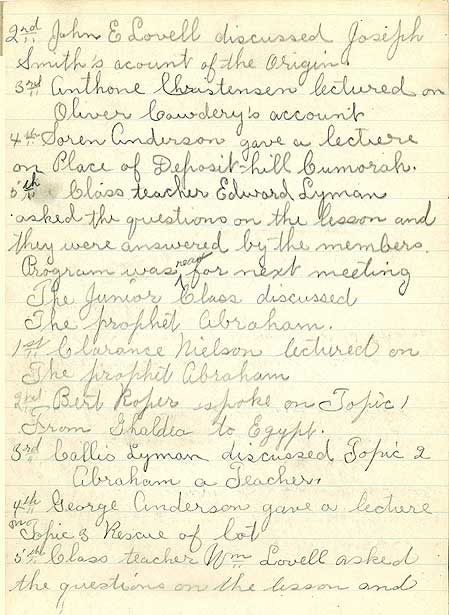 2nd John E Lovell discussed Joseph
Smith's acount of the Origin.
3rd Anthone Christensen lectured on
Oliver Cowdery's account
4th Soren Anderson gave a lecture
on Place of Deposit-hill Cumorah.
5th Class teacher Edward Lyman
asked the questions on the lesson and
they were answered by the members.
Program was read for next meeting
The Junior Class discussed
The prophet Abraham.
1st Clarance Nielson lectured on
The prophet Abraham
2nd Bert Roper spoke on Topic 1
From Ghaldea to Egypt.
3rd Callis Lyman discussed Topic 2
Abraham a Teacher.
4th George Anderson gave a lecture
on Topic 3 Rescue of lot
5th Class teacher Wm Lovell asked
the questions on the lesson and